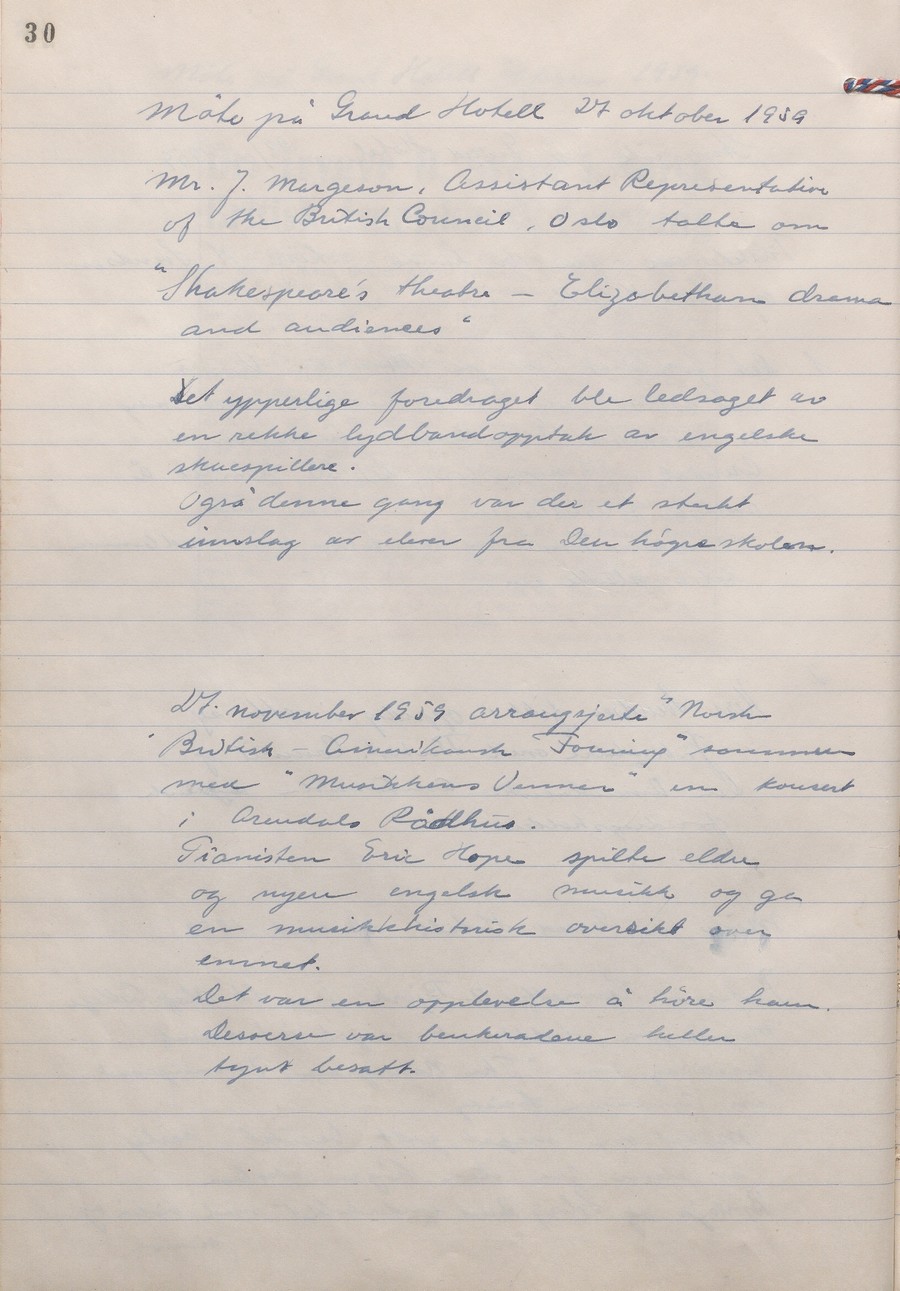 30
Möte på Grand Hotell 27 oktober 1959
Mr. J. Margeson, Assistant Representative
of the British Council, Oslo talte om
"Shakespeare's theatre – Elizabethan drama
and audiences"
Det ypperlige foredraget ble ledsaget av
en rekke lydbandopptak av engelske
skuespillere.
Også denne gang var der et sterkt
innslag av elever fra Den högre skolen.
27. november 1959 arrangsjerte "Norsk
British – Amerikansk Forening" sammen
med "Musikkens Venner" en konsert
i Arendals Rådhus.
Pianisten Eric Hope spilte eldre
og nyere engelsk musikk og ga
en musikkhistorisk oversikt over
emnet.
Det var en opplevelse å höre ham.
Desverre var benkeradene heller
tynt besatt.